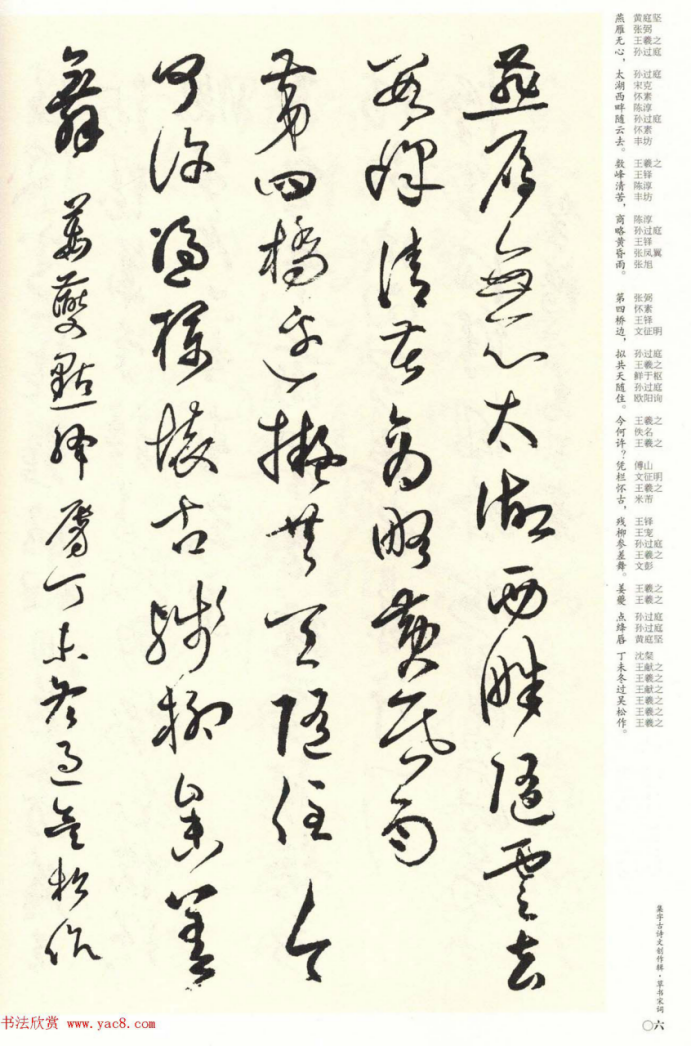 燕雁無心太湖西畔隨雲去
數峰清苦商略黃昏雨
第四橋邊擬共天隨住今
何許憑欄懷古殘柳參差
舞 姜夔點絳脣丁未冬過吳松作
燕 黄庭坚
雁 张弼
无 王羲之
心， 孙过庭
太 孙过庭
湖 宋克
西 怀素
畔 陈淳
随 孙过庭
云 怀素
去。 丰坊
数 王羲之
峰 王铎
清 陈淳
苦， 丰坊
商 陈淳
略 孙过庭
黄 王铎
昏 张凤翼
雨。 张旭
第 张弼
四 怀素
桥 王铎
边， 文征明
拟 孙过庭
共 王羲之
天 鲜于枢
随 孙过庭
住。 欧阳询
今 王羲之
何 佚名
许？ 王羲之
凭 傅山
栏 文征明
怀 王羲之
古， 米芾
残 王铎
柳 王宠
参 孙过庭
差 王羲之
舞。 文彭
姜 王羲之
夔 王羲之
点 孙过庭
绛 孙过庭
唇 黄庭坚
丁 沈粲
未 王献之
冬 王羲之
过 王献之
吴 王羲之
松 王羲之
作。 王羲之
集字古诗文创作辑·草书宋词
〇六
书法欣赏 www.yac8.com